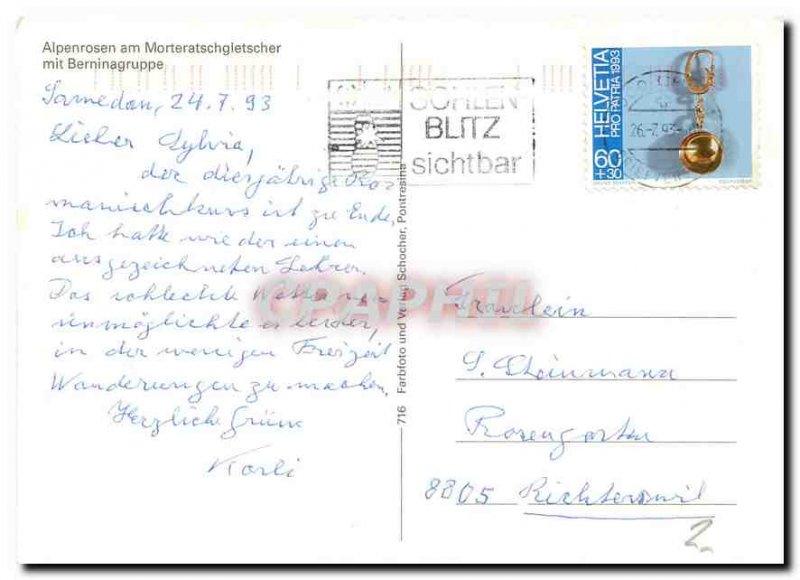 Alpenrosen am Morteratschgletscher
mit Berninagruppe
Samedan, 24.7.93
Lieber Sylvia,
der diesjährige Ro-
manischkurs ist zu Ende,
Ich hatte wieder einen
ausgezeichneten Lehrer.
Das schlechte Wetter ver-
unmöglichte es leider,
in der wenigen Freizeit
Wanderungen zu machen.
Herzliche Grüsse
Karli
716 Farbfoto und Verlag Schocher, Pontresina
SOHLEN
BLITZ
sichtbar
HELVETIA
PRO PATRIA 1993
60
+30
26.-7.93
CPAPHIL
Fräulein
S. Steinmann
Rosengarten
8805 Richterswil
2.